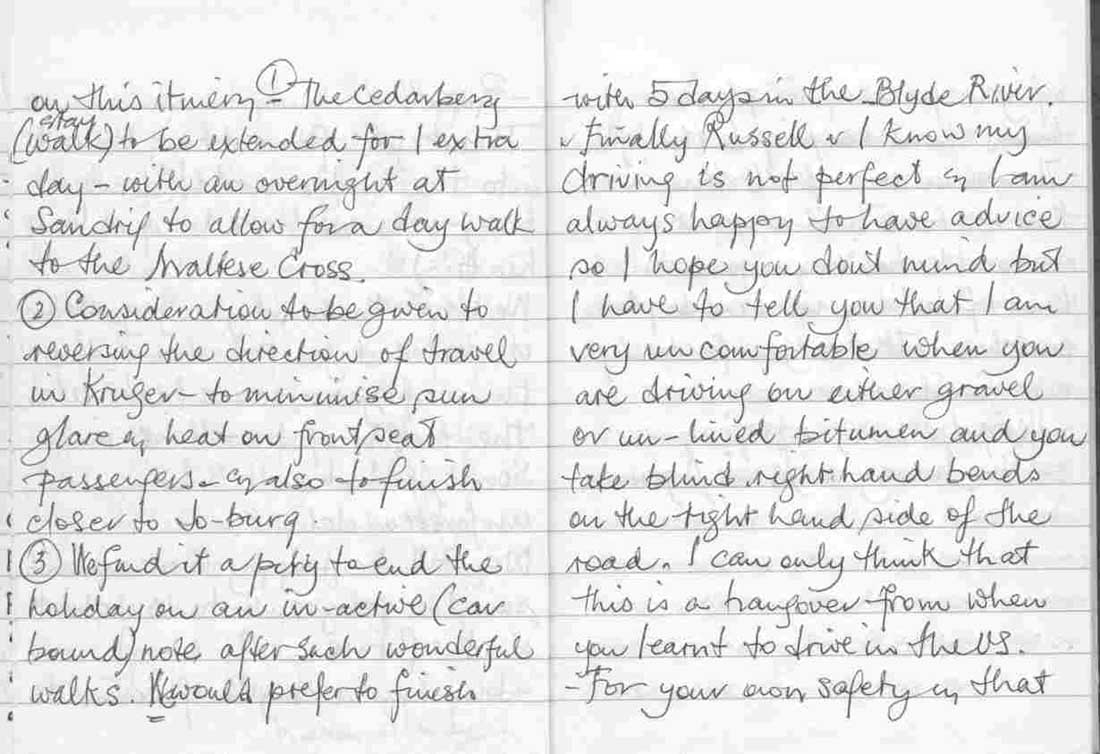 on this itinery ① – The Cedarberg
stay
(walk) to be extended for 1 extra
day – with an overnight at
Sandrif to allow for a day walk
to the Maltese Cross.
② Consideration to be given to
reversing the direction of travel
in Kruger – to minimise sun
glare & heat on front seat
passengers – & also to finish
closer to Jo-burg.
③ We find it a pity to end the
holiday on an in-active (car
bound) note after such wonderful
walks. We would prefer to finish
with 5 days in the Blyde River.
Finally Russell I know my
driving is not perfect & I am
always happy to have advice
so I hope you don't mind but
I have to tell you that I am
very uncomfortable when you
are driving on either gravel
or un-lined bitumen and you
take blind right hand bends
on the right hand side of the
road. I can only think that
this is a hangover from when
you learnt to drive in the US.
– For your own safety & that